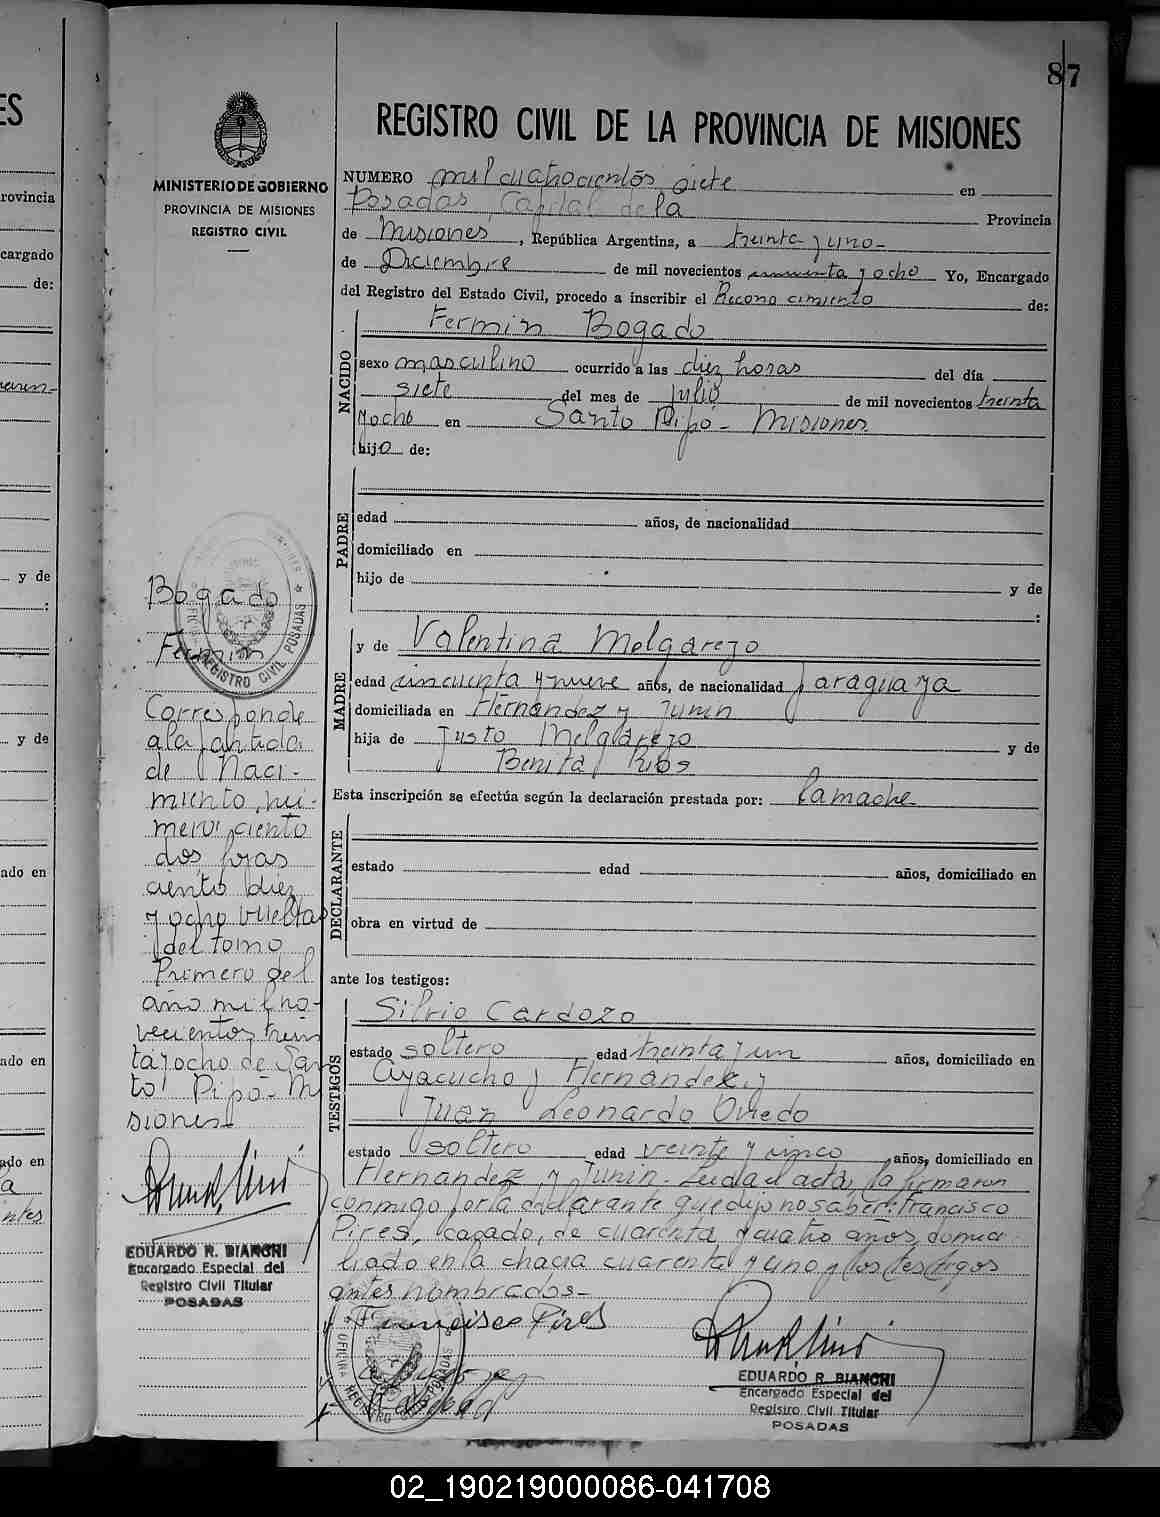 87
REGISTRO CIVIL DE LA PROVINCIA DE MISIONES
MINISTERIO DE GOBIERNO
PROVINCIA DE MISIONES
REGISTRO CIVIL
NUMERO mil cuatrocientos siete en
Posadas, Capital de la Provincia
de Misiones, República Argentina, a treinta y uno
de Diciembre de mil novecientos cincuenta y ocho Yo, Encargado
del Registro del Estado Civil, procedo a inscribir el Reconocimiento de:
NACIDO
Fermin Bogado
sexo masculino ocurrido a las diez horas del día
siete del mes de Julio de mil novecientos treinta
y ocho en Santo Pipó - Misiones
hijo de:
PADRE
edad años, de nacionalidad
domiciliado en
hijo de y de
:
MADRE
y de Valentina Melgarejo
edad cincuenta y nueve años, de nacionalidad paraguaya
domiciliada en Hernandez y Junin
hija de Justo Melgarejo y de
Benita Rios
Esta inscripción se efectúa según la declaración prestada por: la madre
DECLARANTE
estado edad años, domiciliado en
obra en virtud de
ante los testigos:
TESTIGOS
Silvio Cardozo
estado soltero edad treinta y un años, domiciliado en
Ayacucho y Hernandez y
Juan Leonardo Oviedo
estado soltero edad veinte y cinco años, domiciliado en
Hernandez y Junin. Leida el acta, la firmaron
conmigo por la declarante que dijo no saber: Francisco
Pires, casado, de cuarenta y cuatro años, domici
liado en la chacra cuarenta y uno y los testigos
antes nombrados-
Francisco Pires
EDUARDO R. BIANCHI
Encargado Especial del
Registro Civil Titular
POSADAS
OFICINA REGISTRO CIVIL POSADAS
Bogado
Fermin
OFICINA REGISTRO CIVIL POSADAS
Corresponde
a la partida
de Naci-
miento nú-
mero ciento
dos fojas
ciento diez
y ocho vueltas
del tomo
Primero del
año mil no-
vecientos trein
ta y ocho de San
to Pipó - Mi
siones
EDUARDO R. BIANCHI
Encargado Especial del
Registro Civil Titular
POSADAS
02_190219000086-041708